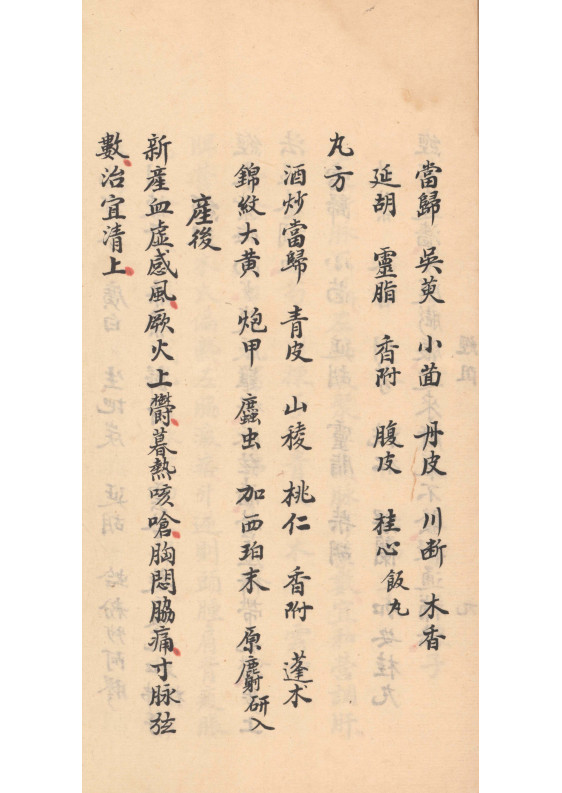 當歸 吳萸 小茴 丹皮 川断 木香
延胡 靈脂 香附 腹皮 桂心飯丸
丸方
酒炒當歸 青皮 山稜 桃仁 香附 蓬术
錦紋大黄 炮甲 䗪虫 加西珀末 原麝研入
産後
新產血虛感風厥火上鬱暮熱咳嗆胸悶脇痛寸脉弦
數治宜清上